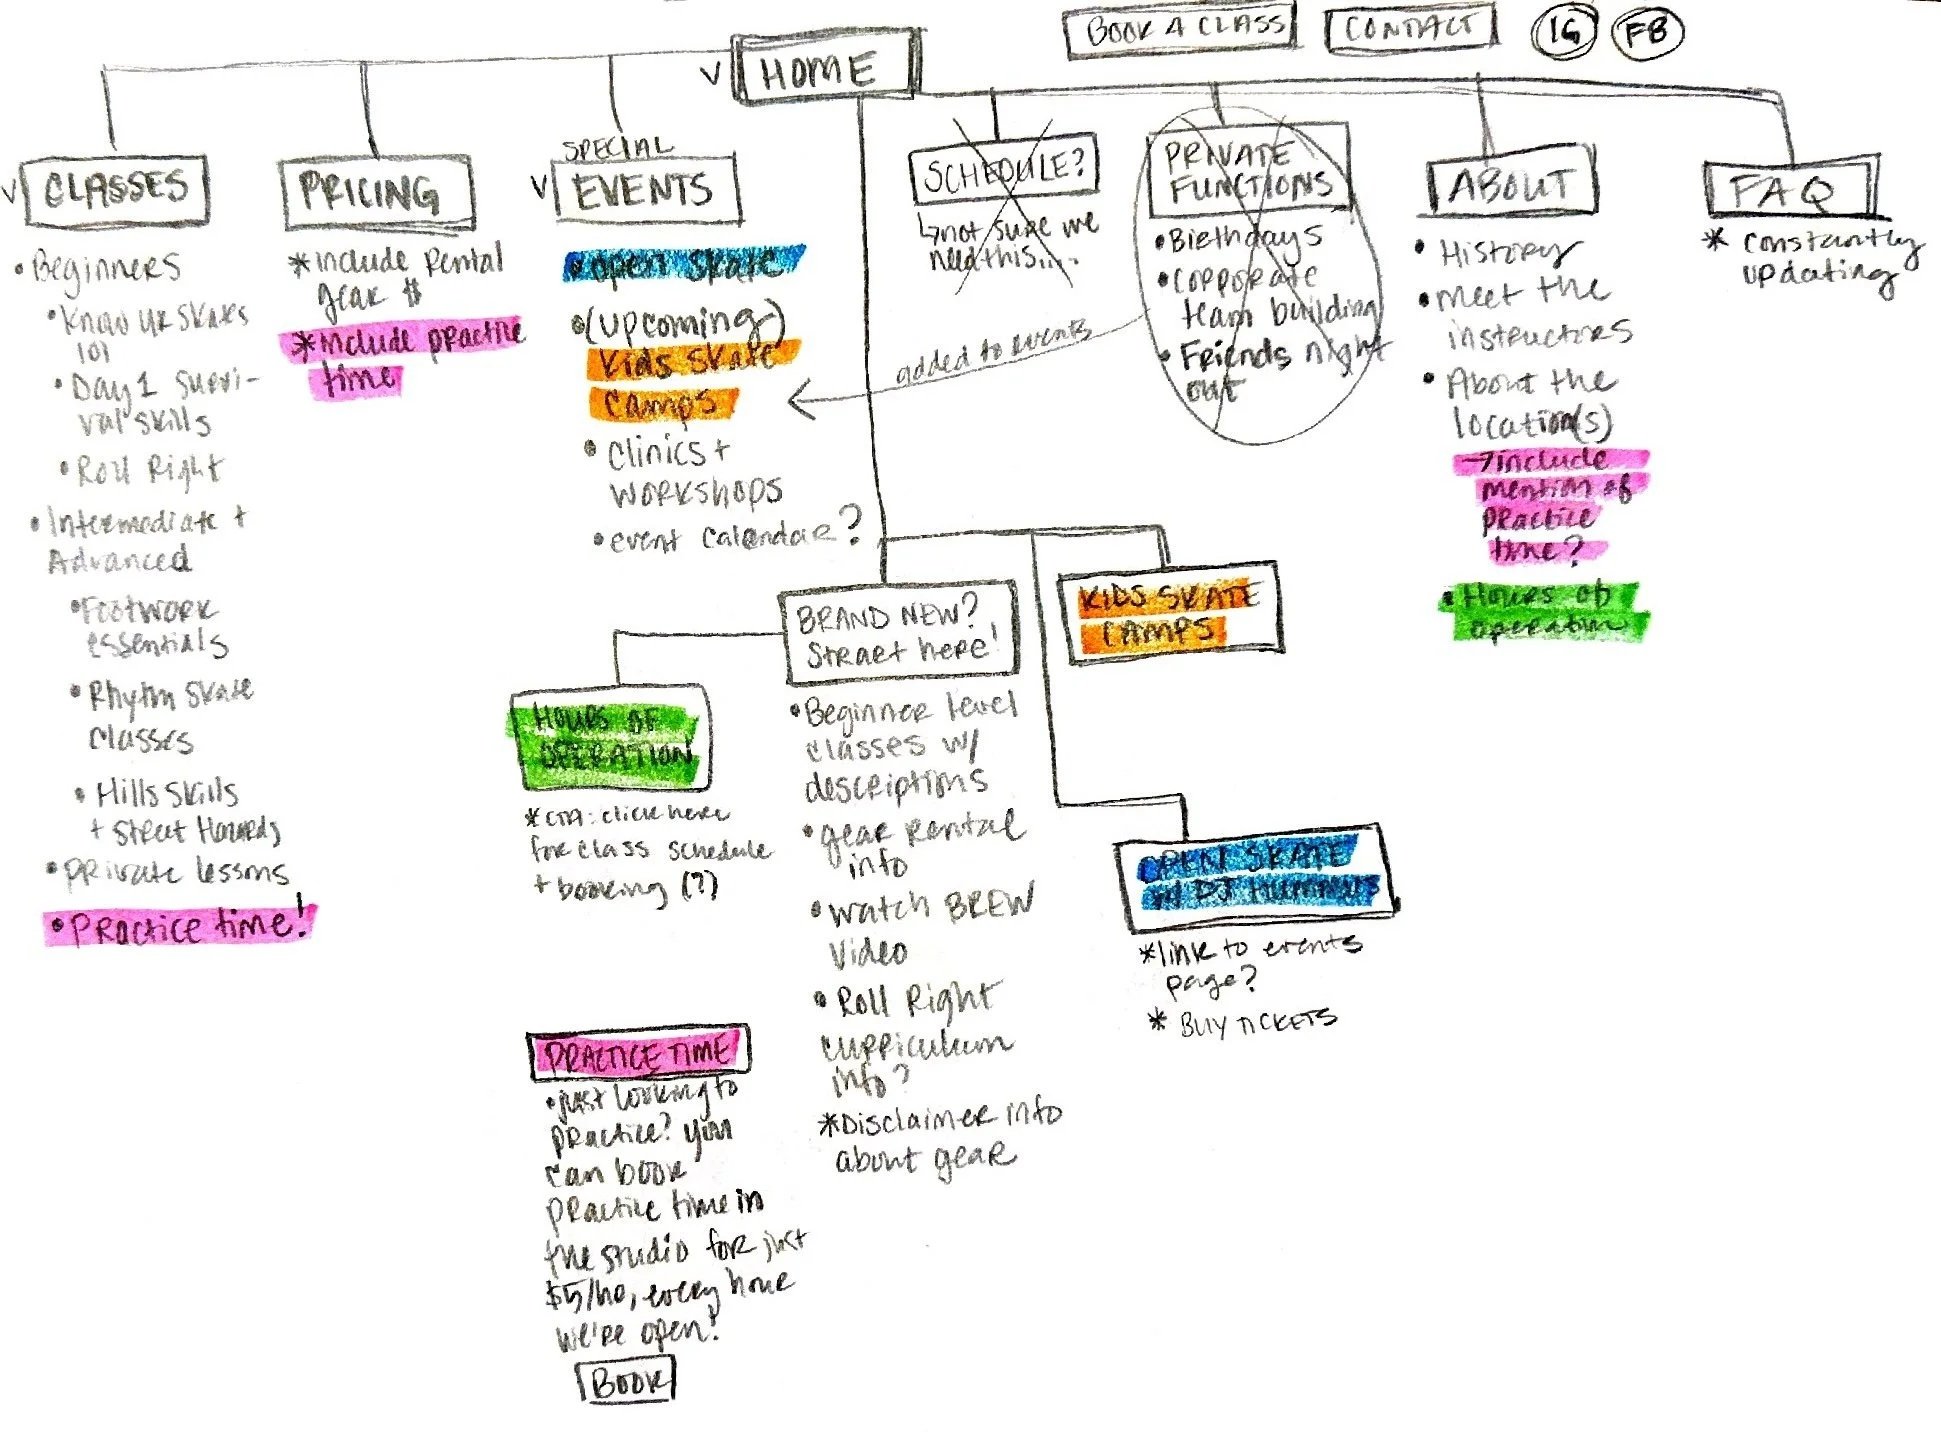 BOOK A CLASS
CONTACT
IG
FB
HOME
CLASSES
• Beginners
• Know Ur Skates
101
• Day 1 Survi-
val skills
• Roll Right
• Intermediate +
Advanced
• Footwork
essentials
• Rhythm Skate
Classes
• Hills Skills
+ Street Hazards
• Private lessons
• Practice time!
PRICING
* Include Rental
gear $
* Include practice
time
SPECIAL
EVENTS
• open skate
• (upcoming)
Kids Skate
Camps
• Clinics +
WORKSHOPS
• event calendar?
SCHEDULE?
↳ not sure we
need this....
PRIVATE
FUNCTIONS
• Birthdays
• Corporate
team building
• Friends night
out
added to events
ABOUT
• History
• Meet the
instructors
• About the
location(s)
→ include
mention of
practice
time?
• Hours of
operation
FAQ
* constantly
updating
BRAND NEW?
Start here!
• Beginner level
classes w/
descriptions
• gear rental
info
• Watch BREW
Video
• Roll Right
curriculum
info?
* Disclaimer info
about gear
KIDS SKATE
CAMPS
HOURS OF
OPERATION
* CTA: click here
for class schedule
+ booking (?)
OPEN SKATE
W/ DJ HUMMUS
* link to events
page?
* BUY TICKETS
PRACTICE TIME
• just looking to
practice? you
can book
practice time in
the studio for just
$5/hr, every hour
we're open!
BOOK